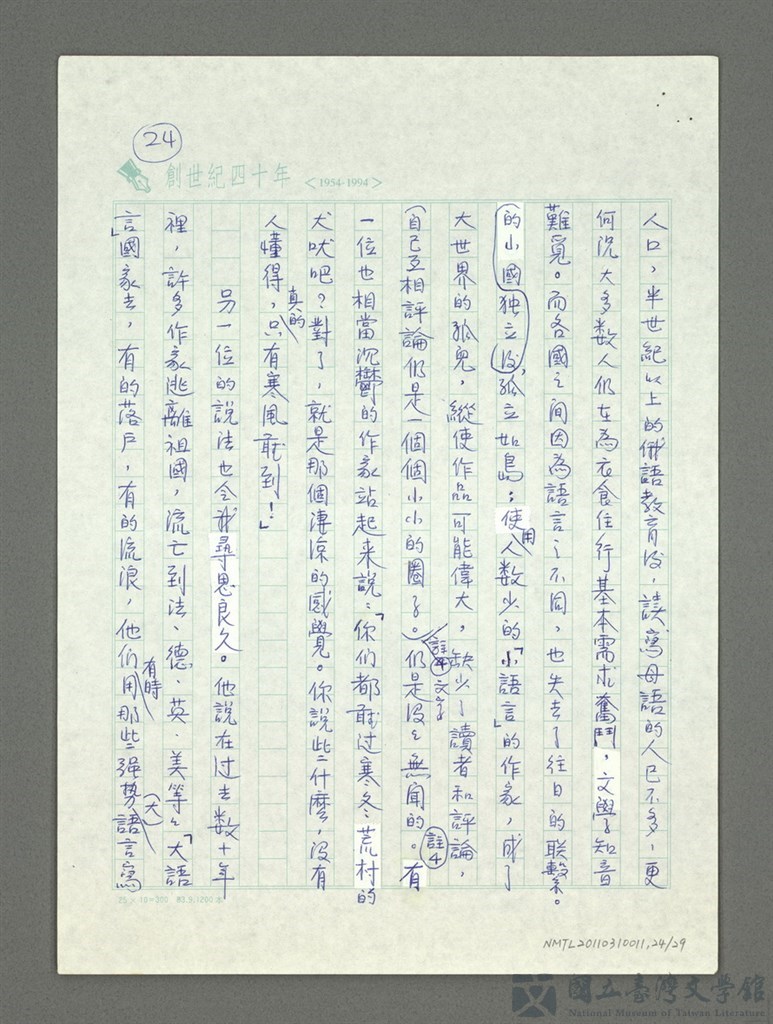 24
創世紀四十年 <1954-1994>
人口，半世紀以上的俄語教育後，讀寫母語的人已不多，更
何況大多数人仍在為衣食住行基本需求奮鬥，文學知音
難覓。而各國之间因為語言之不同，也失去了往日的联繫。
的小國独立後，孤立如島；使用人数少的「小語言」的作家，成了
大世界的孤兒，縱使作品可能偉大，缺少了讀者和評論，
（自己互相評論仍是一個個小小的圈子。註4文学仍是没没無聞的。註4有
一位也相當沉鬱的作家站起来說：「你们都聽过寒冬荒村的
犬吠吧？對了，就是那個凄凉的感覺。你說些什麼，没有
人懂得，真的只有寒風聽到！」
另一位的說法也令我尋思良久。他說在过去数十年
裡，許多作家逃離祖國，流亡到法、德、英、美等等「大語
言」國家去，有的落戶，有的流浪，他们有時用那些强势（大）語言寫
25×10=200 83.9.1200本
NMTL20110310011,24/29
國立臺灣文學館
National Museum of Taiwan Literature